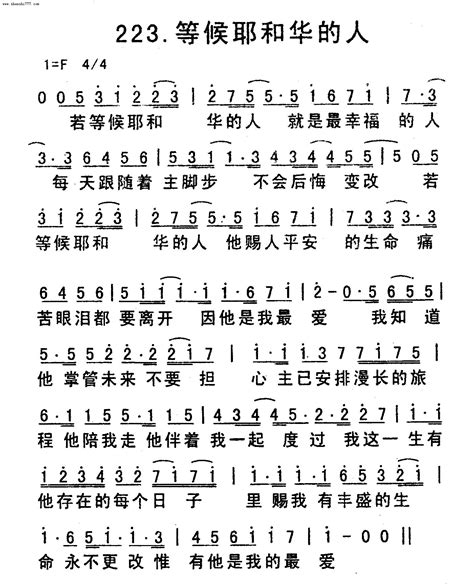 223.等候耶和华的人
1=F 4/4
0 0 5 3 1 2 2 3 | 2 7 5 5·5 1 6 7 1 | 7·3
若等候耶和 华的人 就是最幸福 的人
3·3 6 4 5 6 | 5 3 1 1·3 4 4 5 4 | 5 0 5
每 天跟随着 主脚步 不会后悔 变改 若
3 1 2 2 3 | 2 7 5 5·5 1 6 7 1 | 7·3 3·3
等候耶和 华的人 他赐人平安 的生命 痛
6 4 5 6 | 5 i i i·i i·i | 2-0·5 6 5 5
苦眼泪都 要离开 因他是我最 爱 我知 道
3·5 5 2 2·2 2 1 7 | i i·3 7 7 1 7 5
他 掌管未来 不要 担 心 主已安排漫长的旅
6·1 1 5 5·1 5 1 5 | 4 3 4 4 5·5 1 2 3 4
程 他陪我走 他伴着 我一起 度过 我这一生有
1 2 3 4 3 2 7 1 7 1 | i i·6 5 3 2 1
他存在的每个日 子 里 赐我 有丰盛的生
1·6 5 1 1·3 | 4 5 6 1 1·7 | 1-0 0 ||
命 永不更改惟 有他是我的最 爱